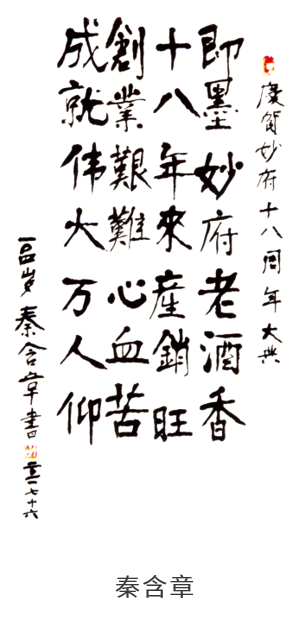 慶賀妙府十八周年大典
即墨妙府老酒香
十八年來產銷旺
創業艱難心血苦
成就伟大万人仰
秦含章書
秦含章